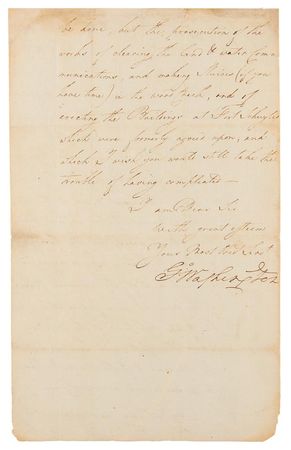 be done, but the prosecution of the
works of clearing the land & water Com-
munications, and making Sluices (if you
have time) in the wood Creek, and of
erecting the Buildings at Fort Schuyler
which were formerly agreed upon, and
which I wish you would still take the
trouble of having compleated —
I am Dear Sir
with great esteem
Your Most Obed Servt
Go: Washington